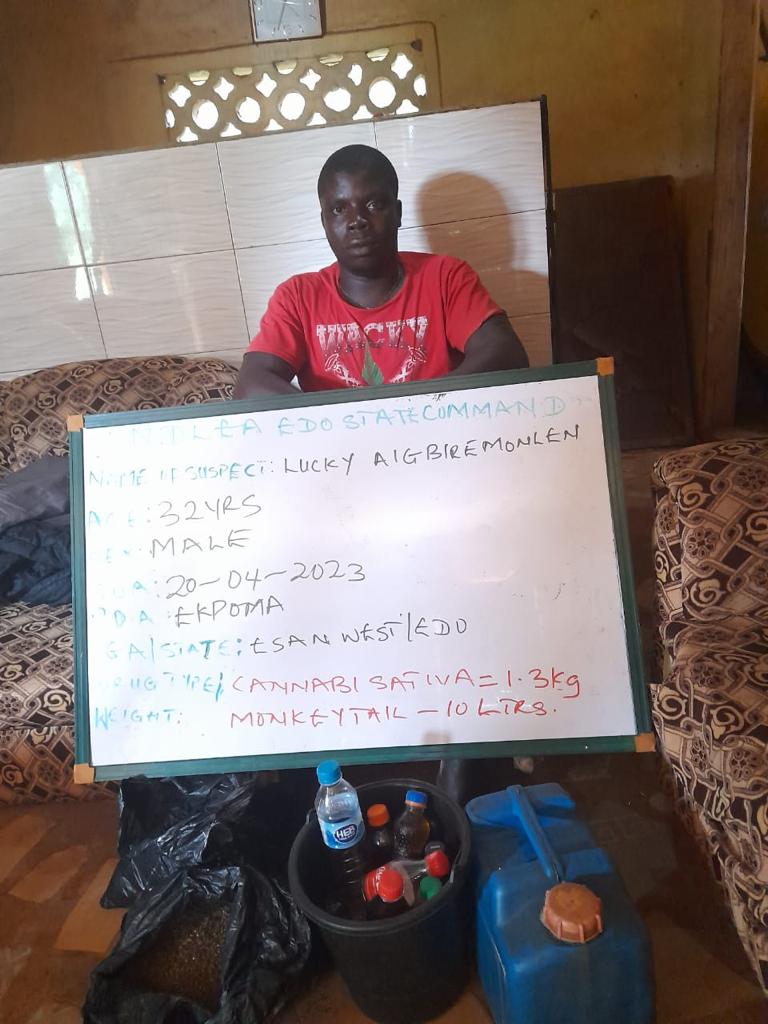 WACKY
NDLEA EDO STATE COMMAND
NAME OF SUSPECT: LUCKY AIGBIREMONLEN
AGE: 32YRS
MALE
20-04-2023
EKPOMA
STATE: ESAN WEST/EDO
TYPE/ CANNABI SATIVA = 1.3kg
WEIGHT: MONKEYTAIL - 10 LTRS.